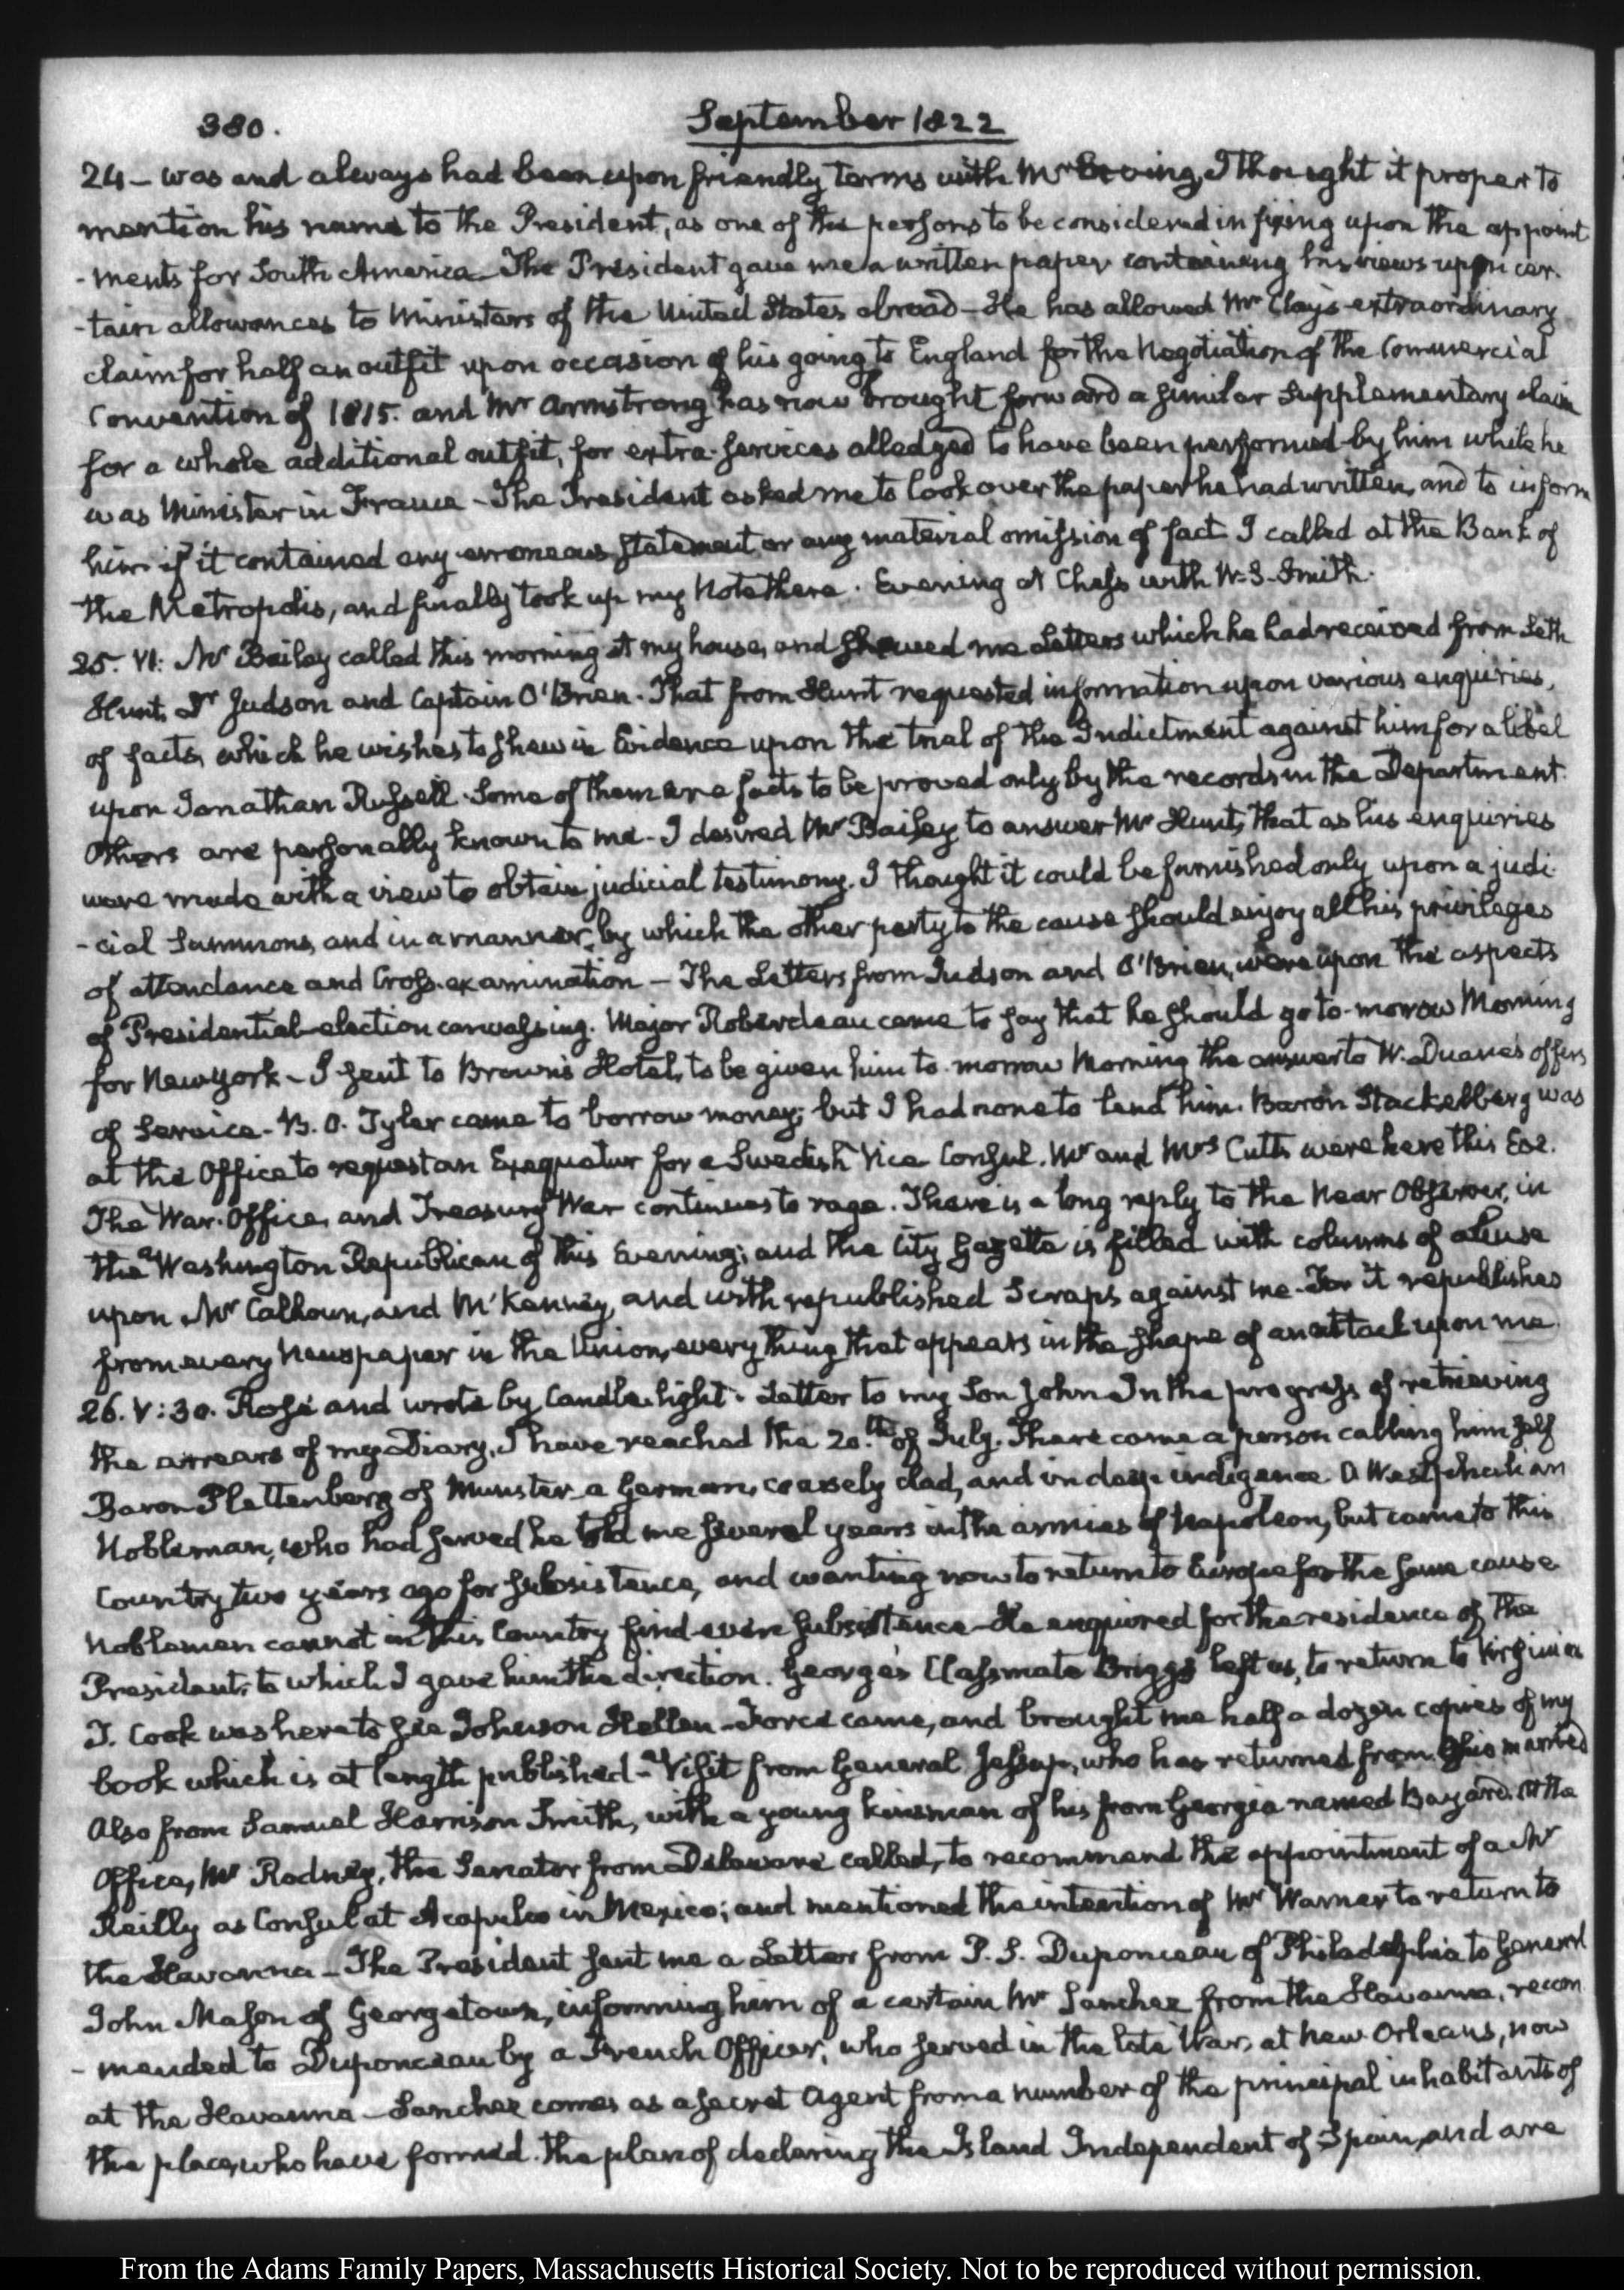 380.
September 1822
24 – was and always had been upon friendly terms with Mr Erving, I thought it proper to
mention his name to the President, as one of the persons to be considered in fixing upon the appoint
-ments for South America – The President gave me a written paper containing his views upon cer-
-tain allowances to Ministers of the United States abroad – He has allowed Mr Clay's extraordinary
claim for half an outfit upon occasion of his going to England for the Negotiation of the Commercial
Convention of 1815. and Mr Armstrong has now brought forward a similar supplementary claim
for a whole additional outfit, for extra-services alledged to have been performed by him while he
was Minister in France – The President asked me to look over the paper he had written, and to inform
him if it contained any erroneous statement or any material omission of fact I called at the Bank of
the Metropolis, and finally took up my Note there. Evening at Chess with W. S. Smith.
25. VI: Mr Bailey called this morning at my house, and shewed me Letters which he had received from Seth
Hunt, Dr Judson and Captain O'Brien. That from Hunt requested information upon various enquiries,
of facts, which he wishes to shew in Evidence upon the trial of the Indictment against him for a libel
upon Jonathan Russell. Some of them are facts to be proved only by the records in the Department.
Others are personally known to me – I desired Mr Bailey to answer Mr Hunt, that as his enquiries
were made with a view to obtain judicial testimony. I thought it could be furnished only upon a judi
-cial summons, and in a manner, by which the other party to the cause should enjoy all his privileges
of attendance and Cross-examination – The Letters from Judson and O'Brien, were upon the aspects
of Presidential-election canvassing. Major Roberdeau came to say that he should go to-morrow Morning
for New York – I sent to Brown's Hotel, to be given him to-morrow Morning the answer to W. Duane's offers
of service – B. O. Tyler came to borrow money; but I had none to lend him. Baron Stackelberg was
at the Office to request an Exequatur for a Swedish Vice Consul. Mr and Mrs Cutts were here this Eve.
The War-Office, and Treasury War continues to rage. There is a long reply to the Near Observer, in
the Washington Republican of this Evening; and the City Gazette is filled with columns of abuse
upon Mr Calhoun, and McKenney, and with republished scraps against me – For it republishes
from every Newspaper in the Union, every thing that appears in the shape of an attack upon me.
26. V:30. Rose and wrote by Candle-light. Letter to my Son John – In the progress of retrieving
the arrears of my Diary, I have reached the 20.th of July. There came a person calling himself
Baron Plettenberg of Munster – a German, coarsely clad, and in deep indigence – A Westphalian
Nobleman, who had served he told me several years in the armies of Napoleon, but came to this
Country two years ago for subsistence, and wanting now to return to Europe for the same cause
Noblemen cannot in this Country find even subsistence – He enquired for the residence of the
President, to which I gave him the direction. George's Classmate Briggs left us, to return to Virginia
J. Cook was here to see Johnson Hellen – Force came, and brought me half a dozen copies of my
book which is at length published – Visit from General Jessup, who has returned from Ohio married
Also from Samuel Harrison Smith, with a young kinsman of his from Georgia named Bayard. At the
Office, Mr Rodney, the Senator from Delaware called, to recommend the appointment of a Mr
Reilly as Consul at Acapulco in Mexico; and mentioned the intention of Mr Warner to return to
the Havanna – The President sent me a Letter from P. S. Duponceau of Philadelphia to General
John Mason of Georgetown, informing him of a certain Mr Sanchez from the Havanna, recom
-mended to Duponceau by a French Officer, who served in the late War, at New-Orleans, now
at the Havanna – Sanchez comes as a secret Agent from a number of the principal inhabitants of
the place, who have formed the plan of declaring the Island Independent of Spain, and are
From the Adams Family Papers, Massachusetts Historical Society. Not to be reproduced without permission.